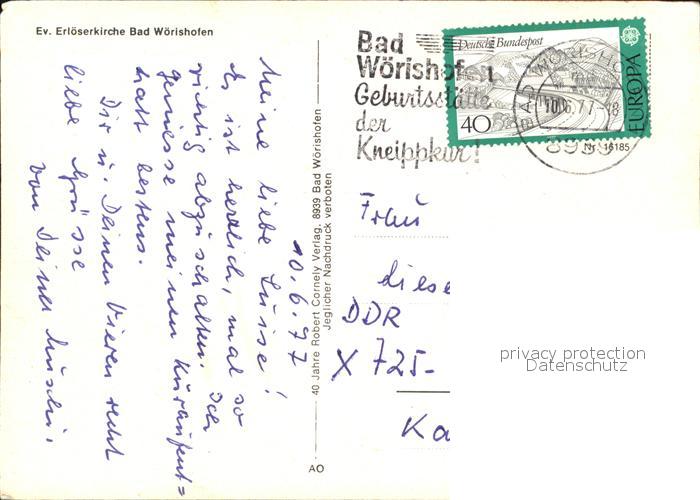 Ev. Erlöserkirche Bad Wörishofen
10.6.77
Meine liebe Luise!
Es ist herrlich, mal so
richtig abzuschalten. Ich
geniesse meinen Kuraufent=
halt bestens.
Dir u. Deinen Vieren recht
liebe Grüsse
von Deiner
40 Jahre Robert Cornely Verlag, 8939 Bad Wörishofen
Jeglicher Nachdruck verboten
AO
Bad
Wörishofen
Geburtsstätte
der
Kneippkur!
Deutsche Bundespost
40
EUROPA
BAD WÖRISHO
10.6.77-18
8939
Nr. 16185
Frau
DDR
X 725-
Ka
privacy protection
Datenschutz